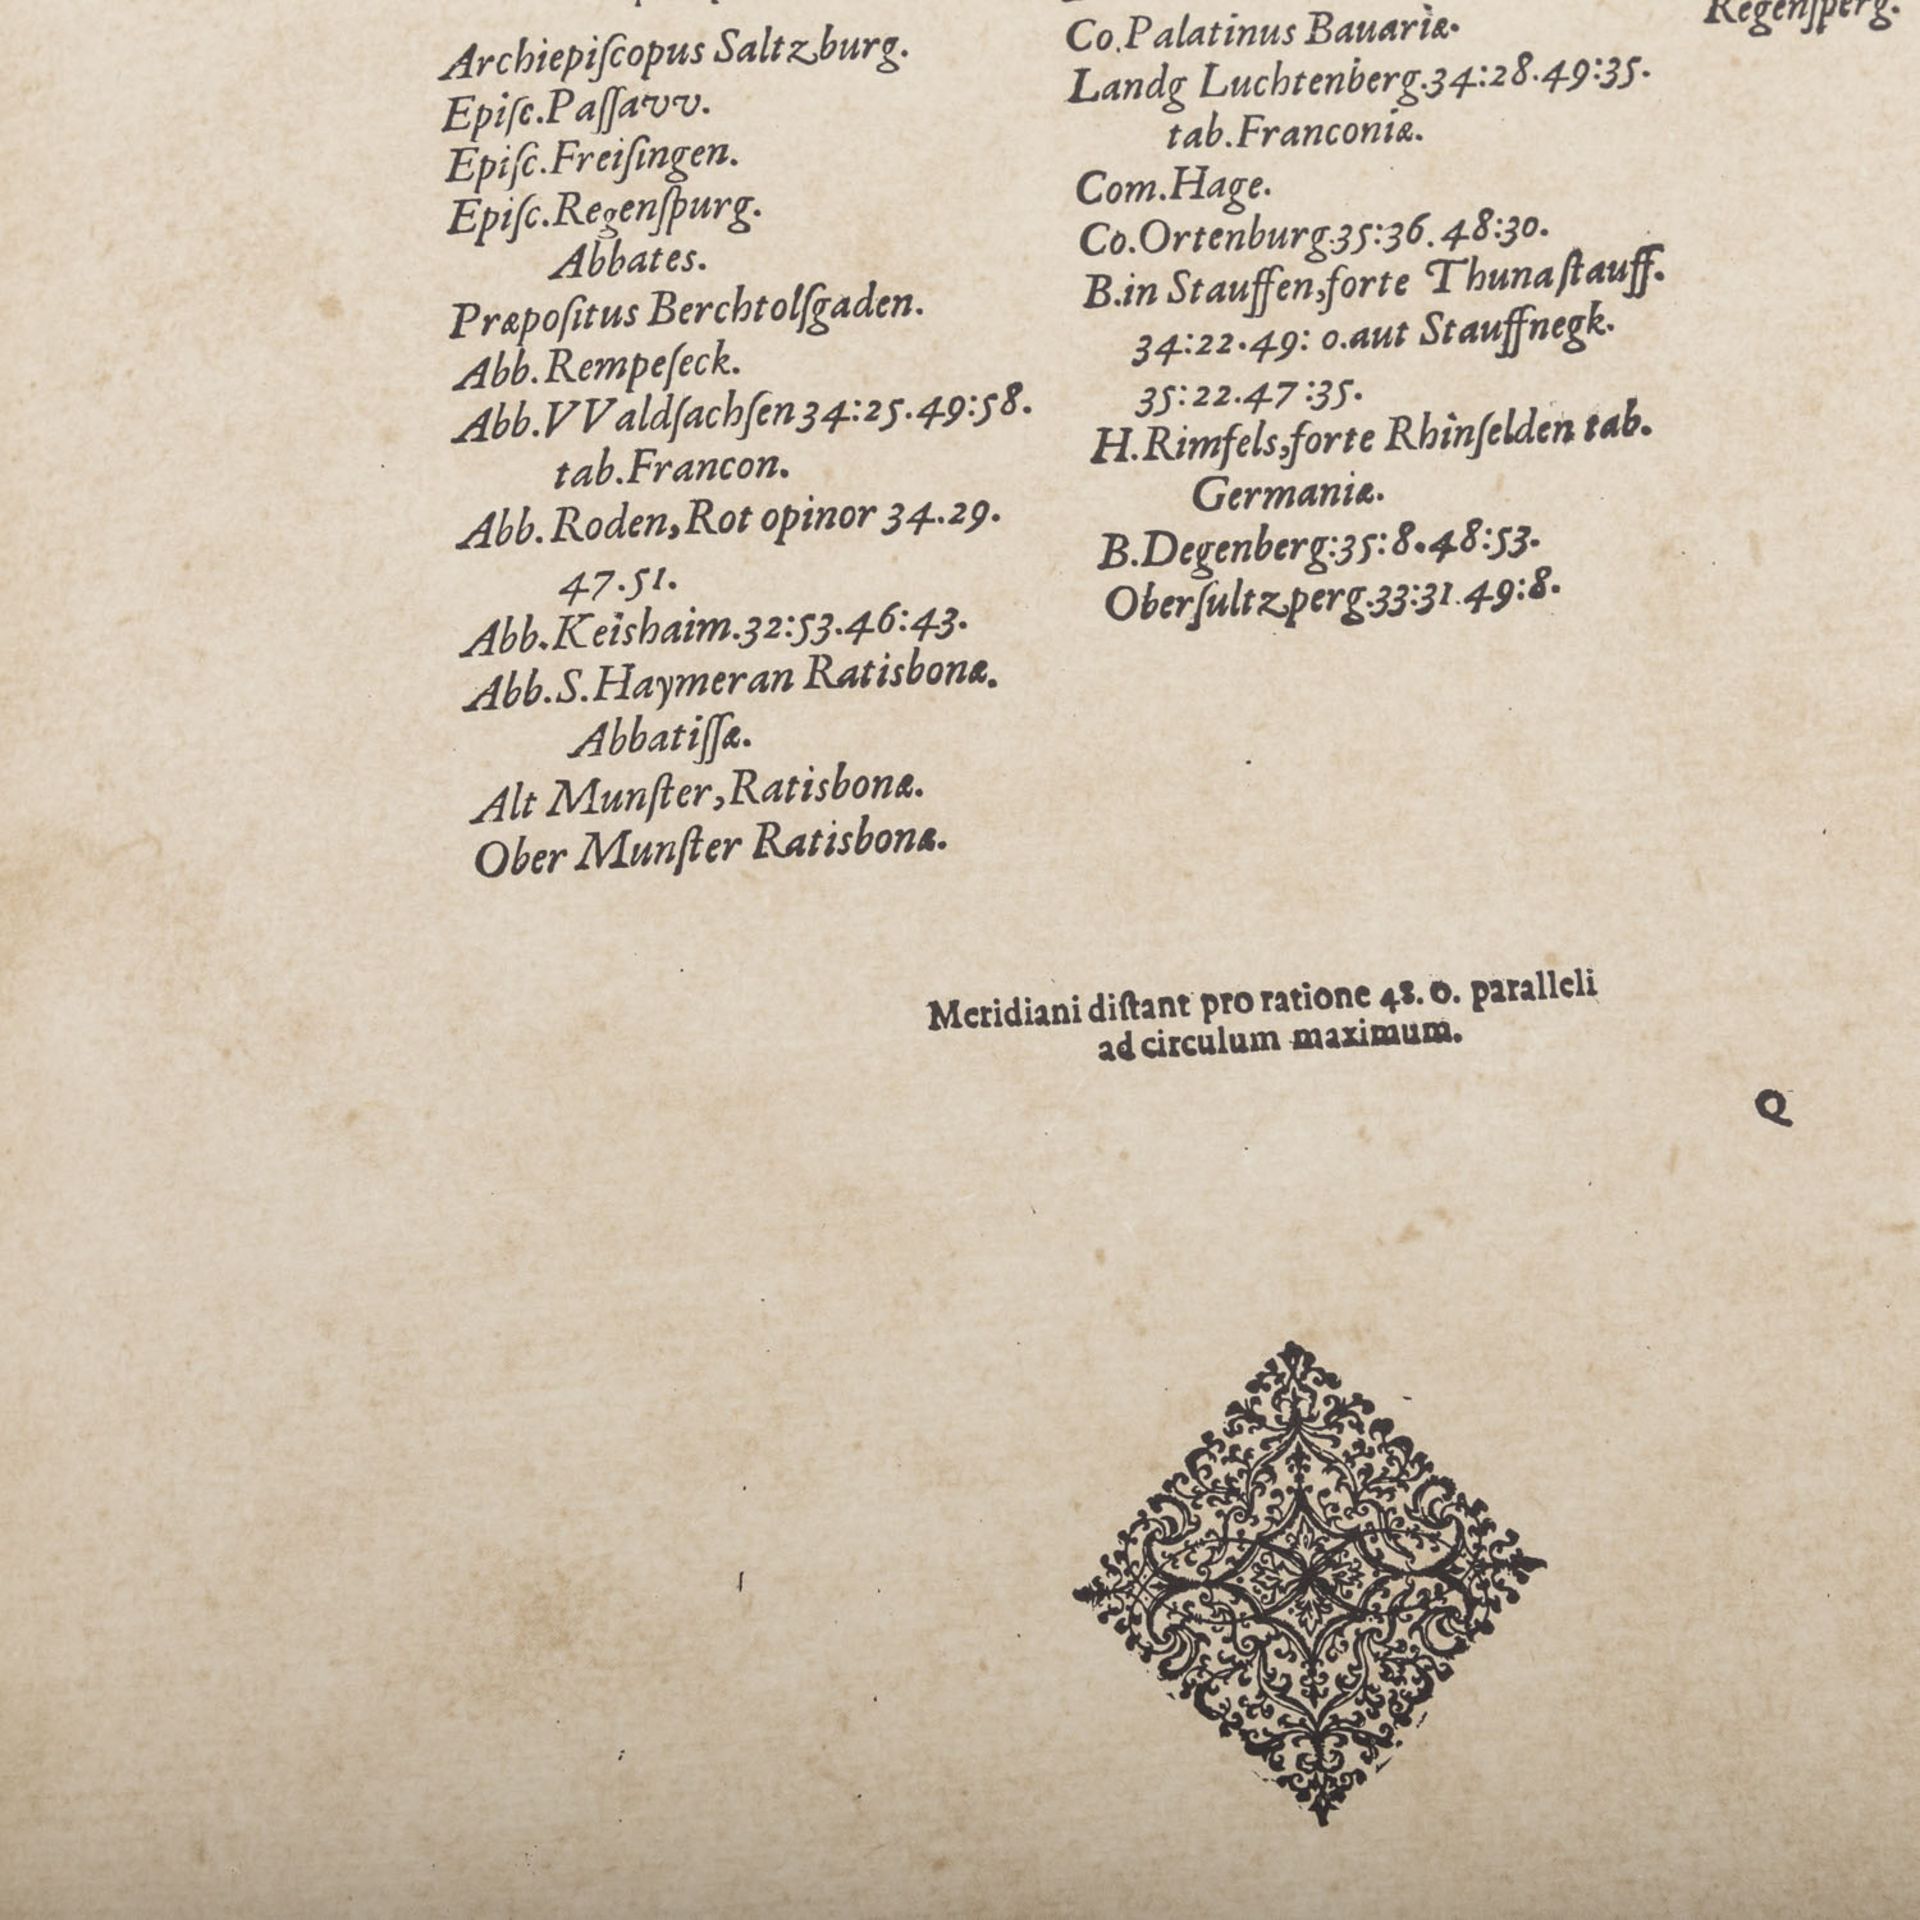 Archiepiſcopus Saltzburg.
Epiſc.Paſſavv.
Epiſc.Freiſingen.
Epiſc.Regenſpurg.
Abbates.
Præpoſitus Berchtolſgaden.
Abb.Rempeſeck.
Abb.VValdſachſen 34:25.49:58.
tab.Francon.
Abb.Roden,Rot opinor 34.29.
47.51.
Abb.Keishaim.32:53.46:43.
Abb.S.Haymeran Ratisbonæ.
Abbatiſſæ.
Alt Munſter,Ratisbonæ.
Ober Munſter Ratisbonæ.
Co.Palatinus Bauariæ.
Landg Luchtenberg.34:28.49:35.
tab.Franconiæ.
Com.Hage.
Co.Ortenburg.35:36.48:30.
B.in Stauffen,forte Thunaſtauff.
34:22.49: 0.aut Stauffnegk.
35:22.47:35.
H.Rimfels,forte Rhinſelden tab.
Germaniæ.
B.Degenberg:35:8.48:53.
Oberſultzperg.33:31.49:8.
Regenſperg.
Meridiani diſtant pro ratione 48.0. paralleli
ad circulum maximum.
Q